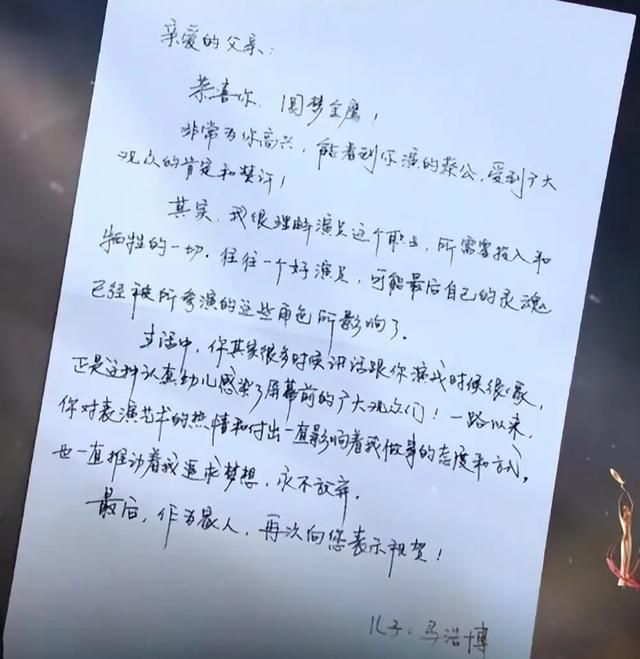 亲爱的父亲:
恭喜你,圆梦金鹰!
非常为你高兴,能看到你演的蔡公,受到广大
观众的肯定和赞许!
其实,我很理解演员这个职业,所需要投入和
牺牲的一切。往往一个好演员,可能最后自己的灵魂
已经被所参演的这些角色所影响了。
生活中,你其实很多时候讲话跟你演戏时候很像,
正是这种认真劲儿感染了屏幕前的广大观众们!一路以来,
你对表演艺术的热情和付出一直影响着我做事的态度和方式,
也一直推动着我追求梦想,永不放弃。
最后,作为家人,再次向您表示祝贺!
儿子:马浩博